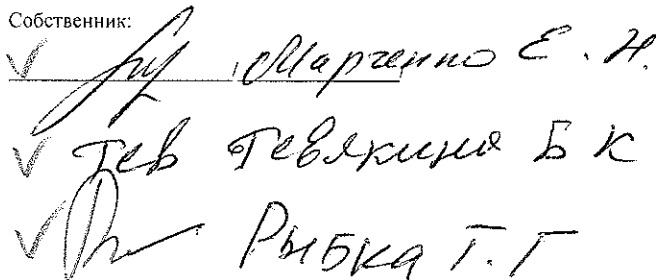 Собственник:
Марченко Е. Н.
Тев Тевякина Б К
Рыбка Т. Г